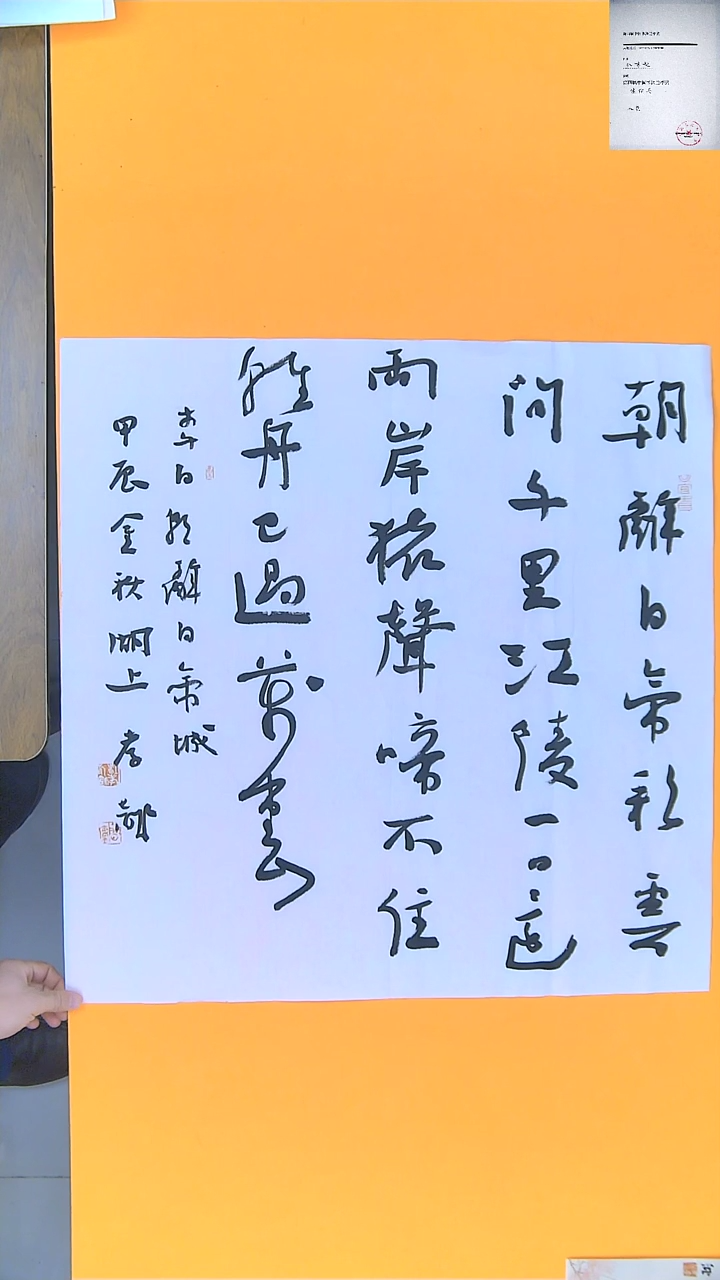 朝辭白帝彩雲
間千里江陵一日還
兩岸猿聲啼不住
輕舟已過萬重山
李白朝辭白帝城
甲辰金秋湖上